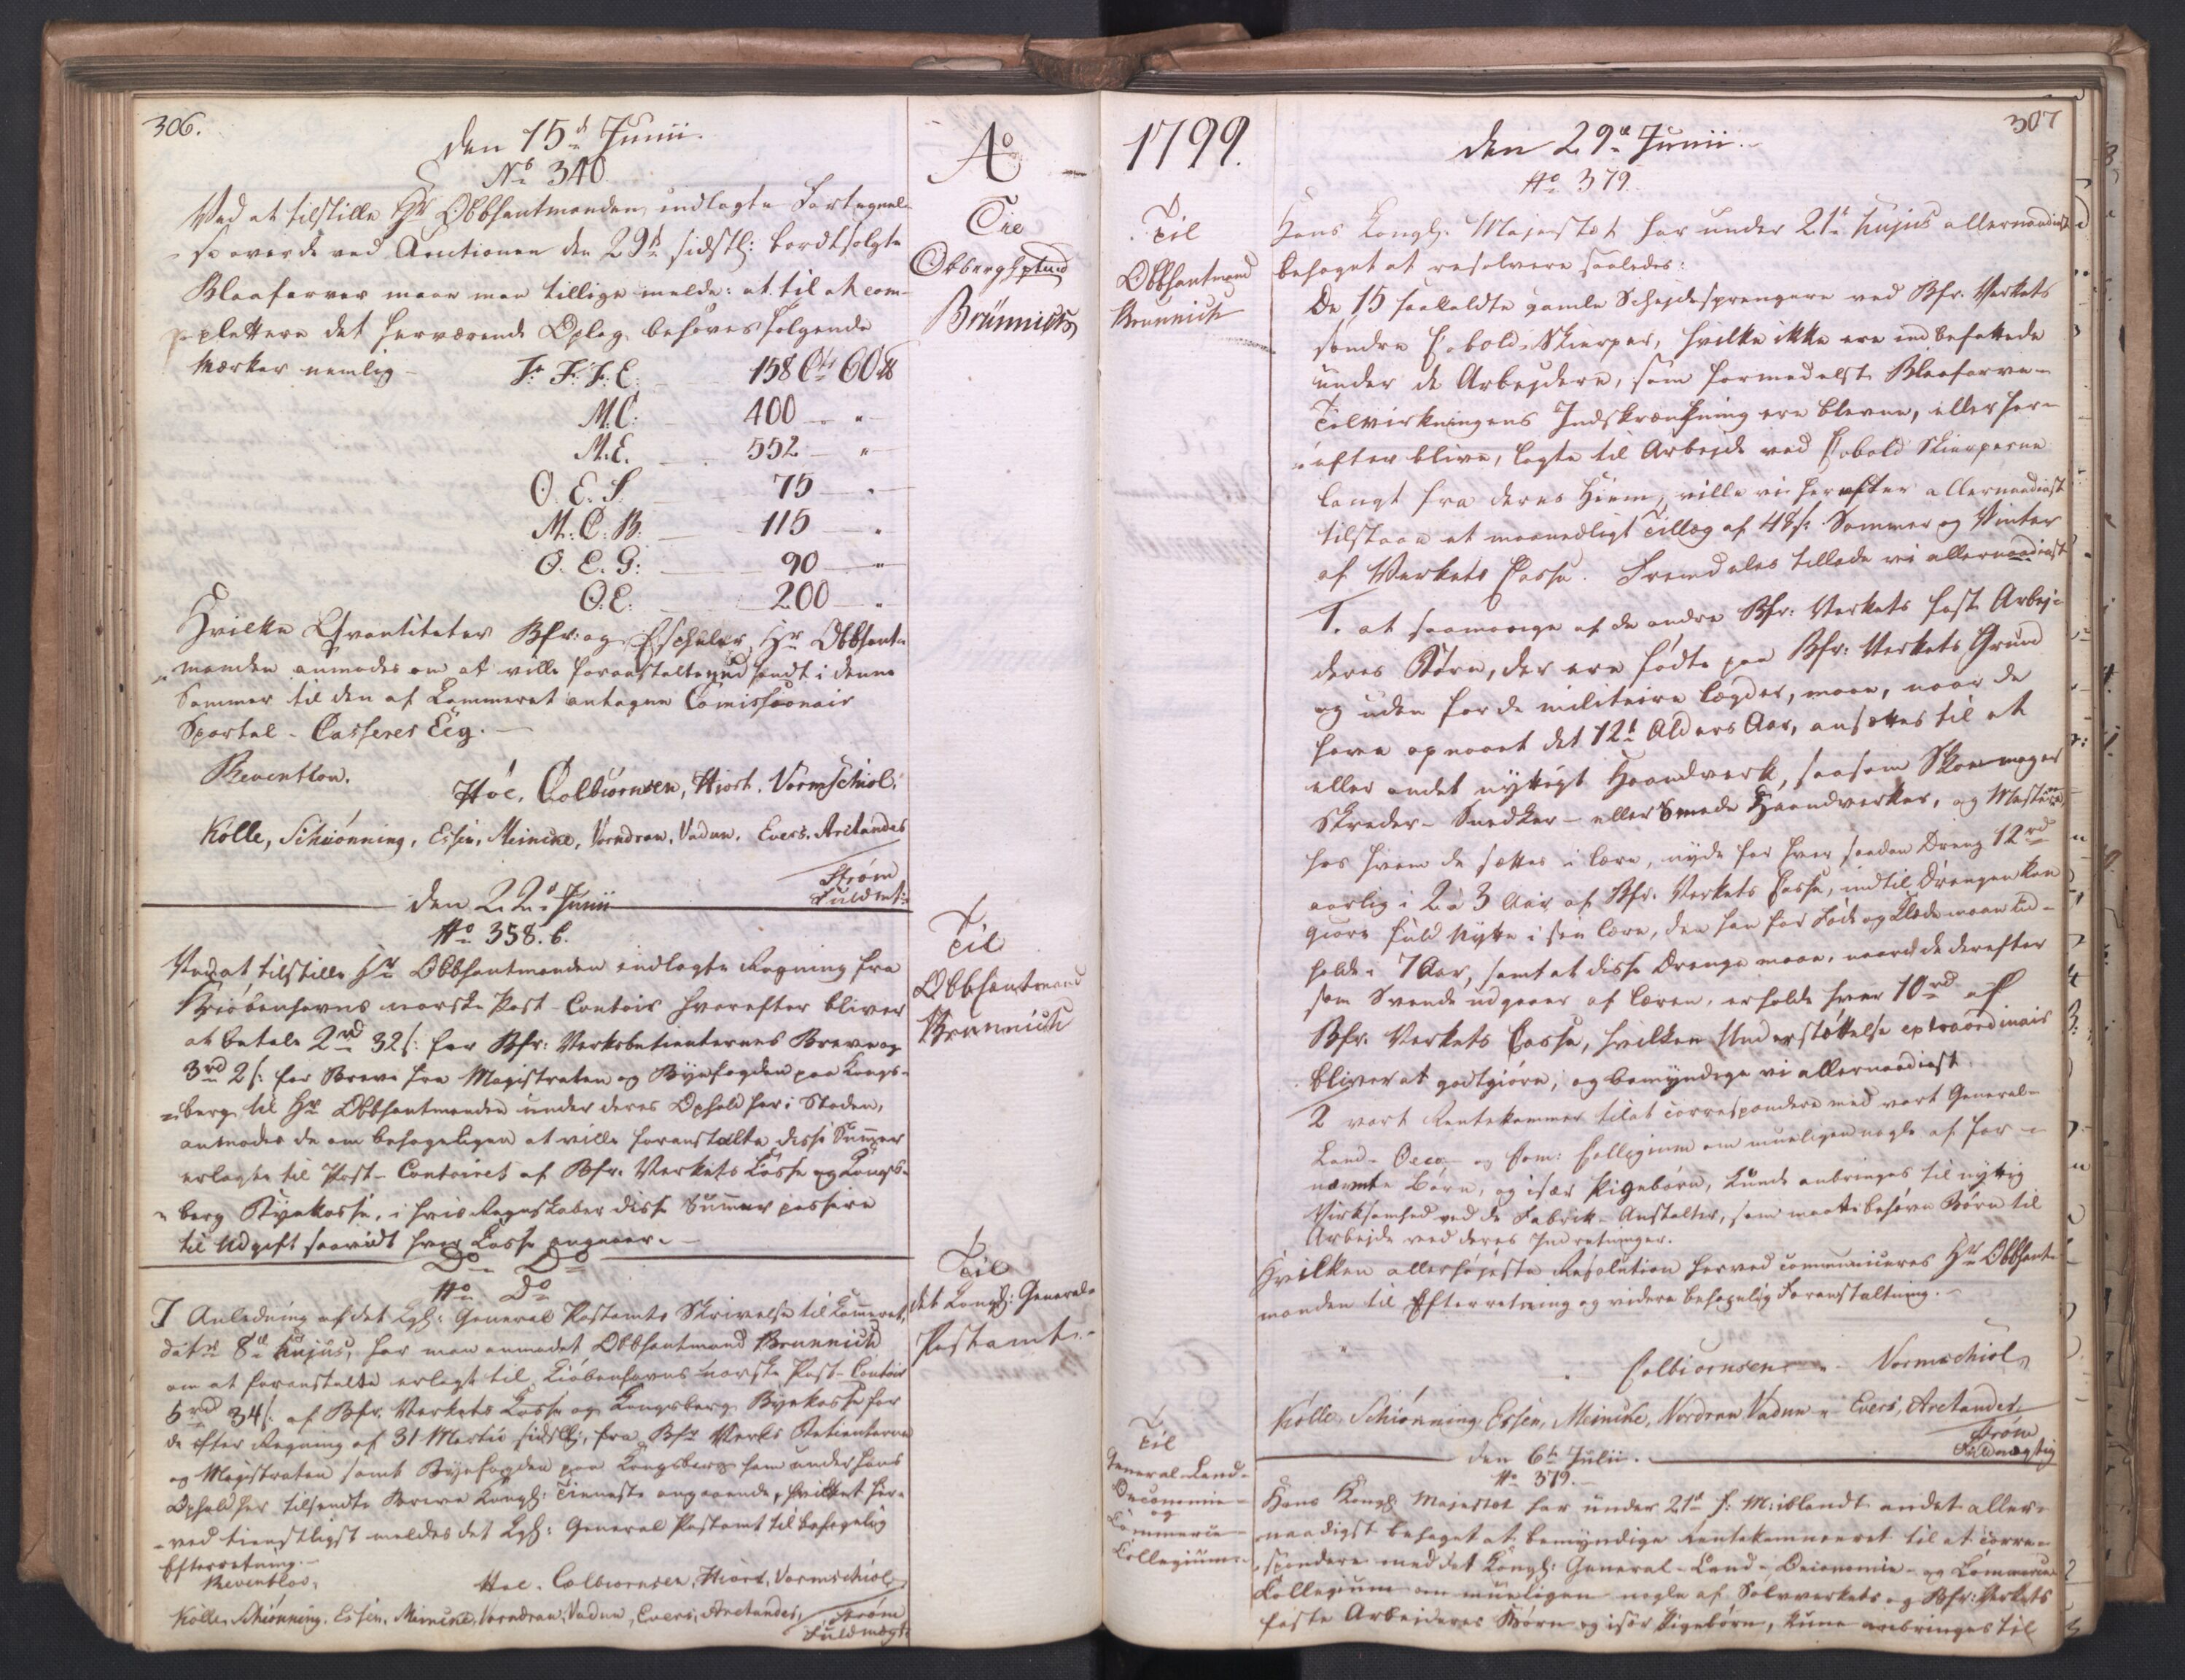 306.
den 15d Junii.
No 340.
Ved at tilstille Hr Obbhautmanden indlagte Fortegnel-
se over de ved Auctionen den 29d sidstl: bordtsolgte
Blaafarver maae man tillige melde: at til at com-
plettere det herværende Oplag behøves følgende
Mærker nemlig -
F. F. F. E. 158 Ctr 60 ℔
M.C: 400 — "
M.E. 552 — "
O. E. S. 75 — "
M. C. B. 115 — "
O. E. G: 90 — "
O.E. 200 — "
Hvilke Qvantiteter Bfr: og Eschuler Hr Obbhaut-
manden anmodes om at ville foranstalte nedsendt i denne
Sommer til den af Kammeret antagne Comissionair
Sportel-Casserer Eeg.
Reventlow.
Hoe, Colbiørnsen, Hiort, Vormschiol.
Kølle, Schiønning, Essen, Meincke, Vorndran, Vadum, Evers, Arctander
Strøm
Fuldmt:
A°
Til
Obberghptmd
Brünnich
den 22d Junii
No 358. b.
Ved at tilstille Hr Obbhautmanden indlagte Regning fra
Kiøbenhavns norske Post-Contoir hvorefter bliver
at betale 2rd 32 s: for Bfr: Verksbetienternes Breve og
3rd 2 s: for Breve fra Magistraten og Byefogden paa Kongs-
berg til Hr Obbhautmanden under deres Ophold her i Staden,
anmodes de om behageligen at ville foranstalte disse Summer
erlagte til Post-Contoiret af Bfr. Verkets Casse og Kongs-
berg Byekasse, i hvis Regnskaber disse Summer passere
til Udgift saavidt hver Casse angaaer.
Til
Obbhautmand
Brünnich
Do Do
No Do
I Anledning af det Kgl: General Postamts Skrivelse til Kameret,
dat: 8d hujus, har man anmodet Obbhautmand Brunnich
om at foranstalte erlagt til Kiøbenhavns norske Post-Contoir
5rd 34 s. af Bfr. Verkets Casse og Kongsberg Byekasse for
de efter Regning af 31 Martii sidstl:, fra Bfr Verks Betienterne
og Magistraten samt Byefogden paa Kongsberg ham under hans
Ophold her tilsendte Breve Kongl: Tieneste angaaende, hvilket her-
ved tienstligst meldes det Kgl: General Postamt til behagelig
Efterretning.
Reventlow,
Hoe. Colbiørnsen, Hiort, Vormschiol,
Kølle, Schiønning, Essen, Meincke, Vorndran, Vadum, Evers, Arctander,
Strøm
Fuldmægt:
Til
det Kongl: General
Postamt.
1799.
307
den 29d Junii.
No 379.
Til
Obbhautmand
Brünnich
Hans Kongl. Majestæt har under 21d hujus allernaadigst
behaget at resolvere saaledes:
De 15 saakaldte gamle Schejdesprengere ved Bfr. Verkets
søndre Cobold-Skierper, hvilke ikke ere indbefattede
under de Arbejdere, som formedelst Blaafarve-
Tilvirkningens Indskrænkning ere blevne, eller her-
efter blive, lagte til Arbejde ved Cobold Skierperne
langt fra deres Hiem, ville vi herefter allernaadigst
tilstaae et maanedligt Tillæg af 48 s: Sommer og Vinter
af Verkets Casse. Fremdeles tillade vi allernaadigst
1. at saamange af de andre Bfr: Verkets fast Arbej-
deres Børn, der ere fødte paa Bfr: Verkets Grund
og uden for de militaire Lægder, maae, naar de
have opnaaet det 12te Alders Aar, ansættes til et
eller andet nyttigt Haandverk, saasom Skoemager
Skræder- Snedker- eller Smede Haandverker, og Mesterne,
hos hvem de sættes i Lære, nyde for hver saadan Dreng 12rd
aarlig i 2 a 3 Aar af Bfr. Verkets Casse, indtil Drengen kan
giøre fuld Nytte i sin Lære, den han for Føde og Klæde maae ud-
holde i 7 Aar, samt at disse Drenge maae, naar de derefter
som Svende udgaaer af Læren, erholde hver 10rd af
Bfr. Verkets Casse, hvilken Understøttelse extraordinair
bliver at godtgiøre, og bemyndige vi allernaadigst
2 vort Rentekammer til at correspondere med vort General-
Land- Oeco- og Com: Collegium om mueligen nogle af for-
nævnte Børn, og især Pigebørn, kunde anbringes til nyttig
Virksomhed ved de Fabrik-Anstalter, som maatte behøve Børn til
Arbejde ved deres Indretninger.
Hvilken allerhøjeste Resolution herved communiceres Hr Obbhaut-
manden til Efterretning og videre behagelig Foranstaltning.
Colbiørnsen Vormschiol,
Kølle, Schiønning, Essen, Meincke, Vordran Vadum Evers, Arctander
Strøm
Fuldmægtig
den 6te Julii.
No 379.
Til
General-Land-
Oeconomie-
og
Commerce-
Collegium
Hans Kongl. Majestæt har under 21d f: M: iblandt andet aller-
naadigst behaget at bemyndige Rentekammeret til at corre-
spondere med det Kongl: General-Land-Oeconomie- og Commerce
Collegium om mueligen nogle af Sølvverkets og Bfr: Verkets
faste Arbeideres Børn og især Pigebørn, kune anbringes til